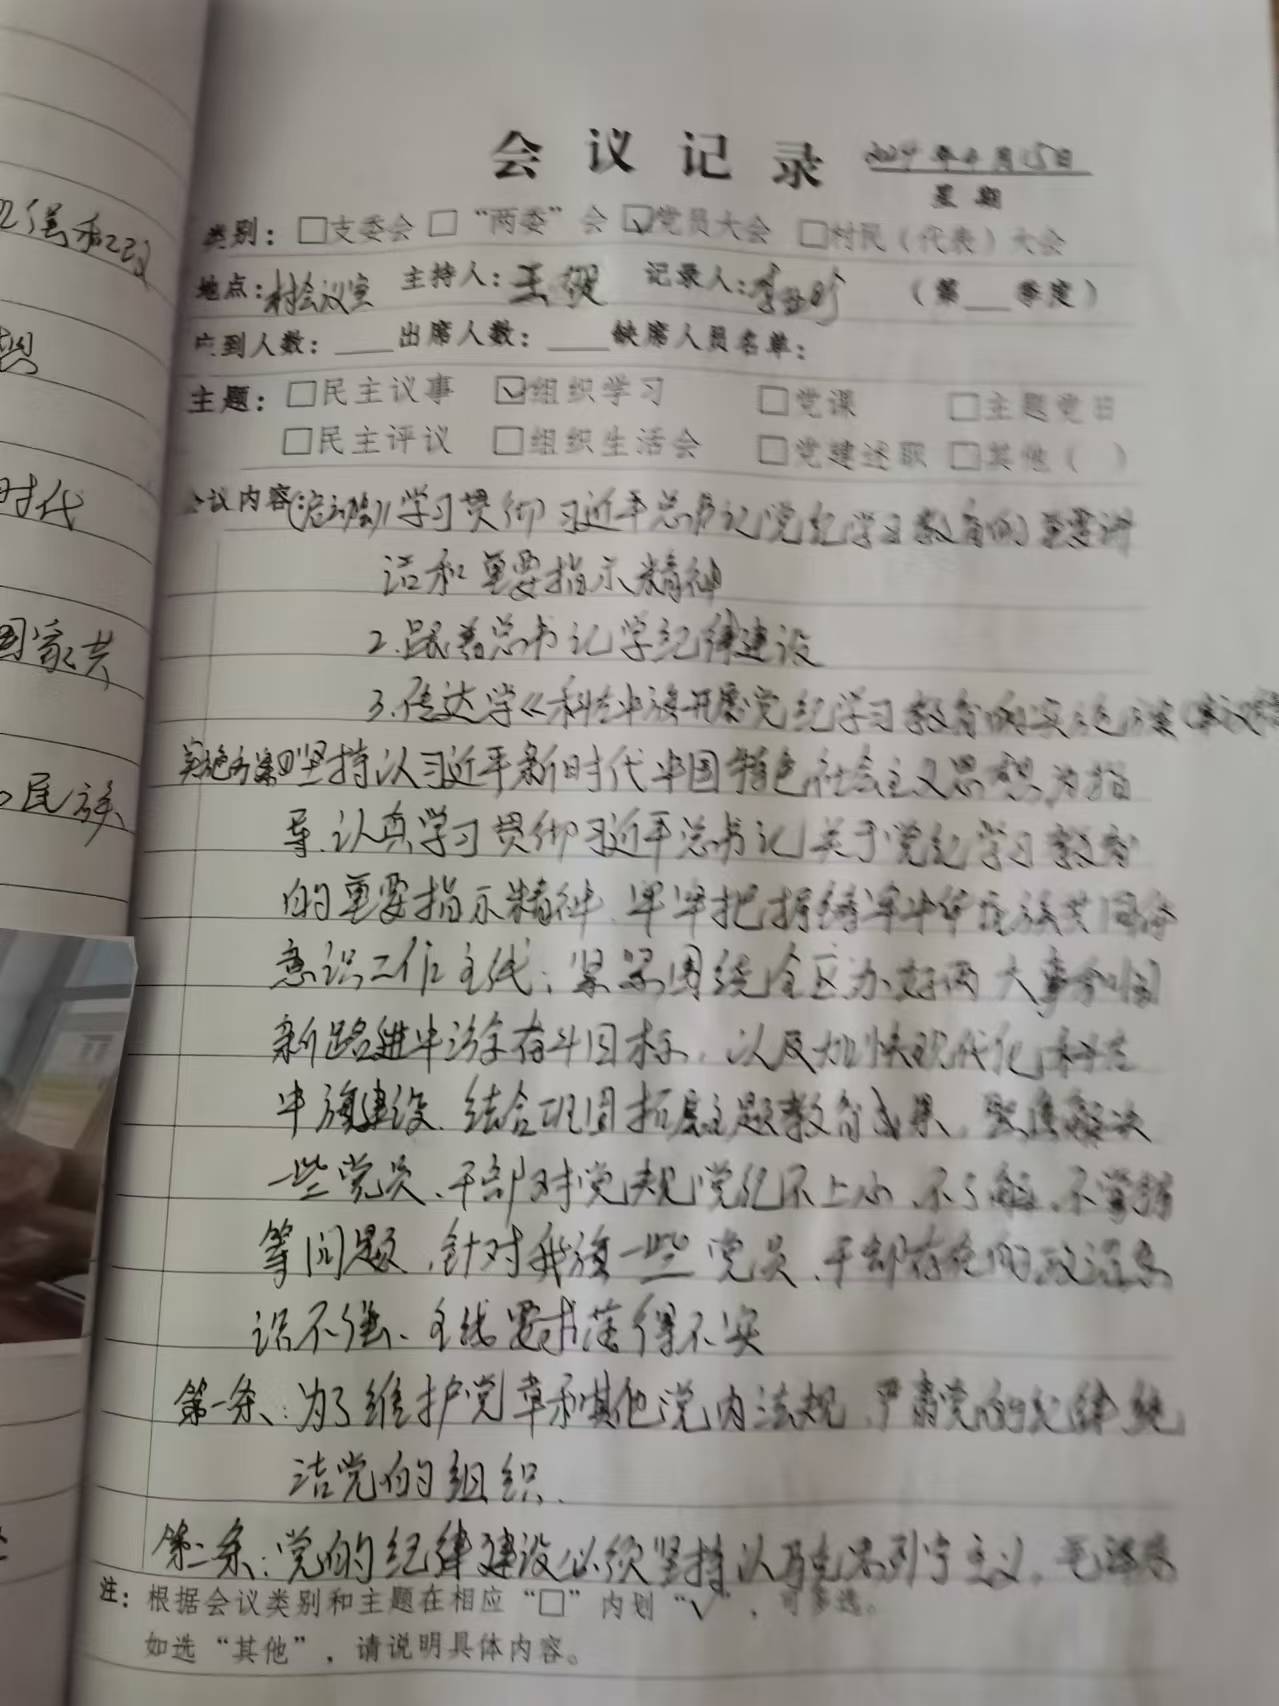 会议记录 2024年4月15日
星期
类别：□支委会 □“两委”会 ☑党员大会 □村民（代表）大会
地点：村会议室 主持人：王 记录人：李 （第___季度）
应到人数：____出席人数：____缺席人员名单：
主题：□民主议事 ☑组织学习 □党课 □主题党日
□民主评议 □组织生活会 □党建述职 □其他（ ）
会议内容：(启动会)1.学习贯彻习近平总书记党纪学习教育的重要讲
话和重要指示精神
2.跟着总书记学纪律建设
3.传达学《科左中旗开展党纪学习教育的实施方案
实施方案①坚持以习近平新时代中国特色社会主义思想为指
导.认真学习贯彻习近平总书记关于党纪学习教育
的重要指示精神.牢牢把握铸牢中华民族共同体
意识工作主线；紧紧围绕全区办好两大事和闯
新路进中游奋斗目标.以及加快现代化科左
中旗建设.结合巩固拓展主题教育成果.聚焦解决
一些党员、干部对党规党纪不上心、不了解、不掌握
等问题.针对我旗一些党员、干部存在的政治意
识不强、主线要求落得不实
第一条：为了维护党章和其他党内法规.严肃党的纪律纯
洁党的组织.
第二条：党的纪律建设必须坚持以马克思列宁主义、毛泽东
注：根据会议类别和主题在相应“□”内划“√”，可多选。
如选“其他”，请说明具体内容。
强和
想
时代
国家共
民族